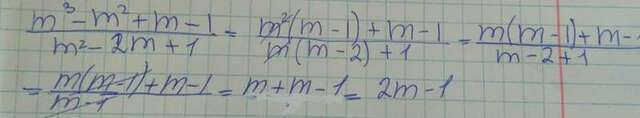 (m³ - m² + m - 1)/(m² - 2m + 1) = (m²(m - 1) + m - 1)/(m(m - 2) + 1) = (m(m - 1) + m -)/(m - 2 + 1)
= (m(m - 1) + m - 1)/(m - 1) = m + m - 1 = 2m - 1